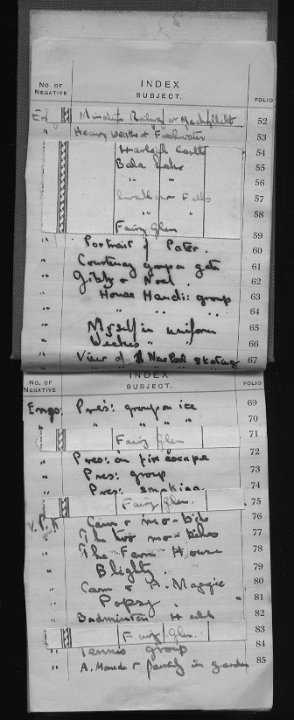 No. OF NEGATIVE INDEX SUBJECT. FOLIO
52
Heavy Weather Freshwater 53
Harlech Castle 54
Bala Lake 55
" " 56
Swallow Falls 57
" " 58
Fairy Glen 59
Portrait of Pater. 60
Courtenay group on gate 61
Gibby & Noel. 62
House Handi: group 63
" " " 64
Myself in uniform 65
" " 66
View of New Pool 67
No. OF NEGATIVE INDEX SUBJECT. FOLIO
Pres: group on ice 69
" " " " 70
Fairy Glen 71
Pres: on fire escape 72
Pres: group 73
Pres: smoking. 74
Fairy Glen. 75
V.P.K Cam & mo-bike 76
The two mo-bikes 77
The "Fern" House 78
Blighty. 79
Cam & A. Maggie 80
Popsy. 81
Badminton Hall 82
Fairy Glen. 83
Tennis group 84
A. Maude & family in garden 85